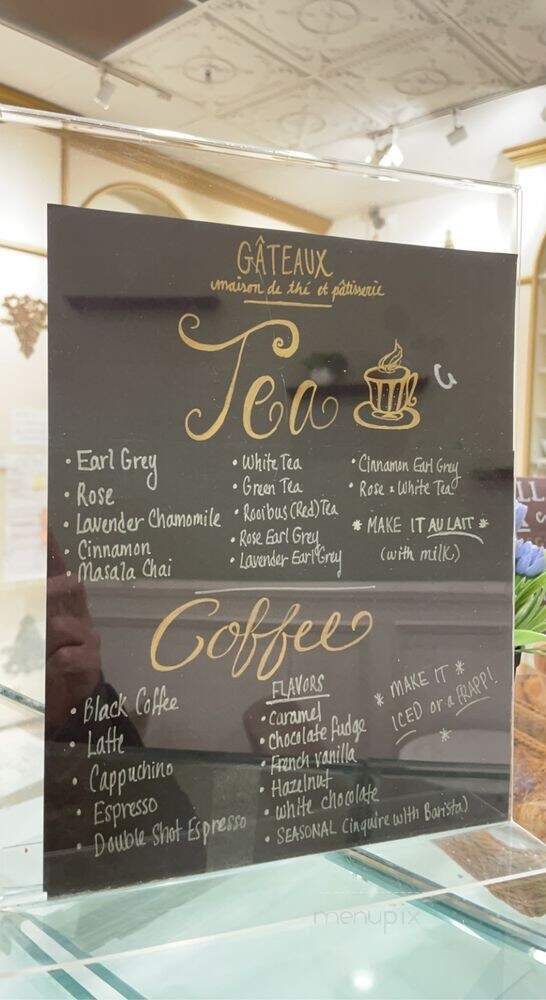 GÂTEAUX
maison de thé et pâtisserie
Tea
• Earl Grey
• Rose
• Lavender Chamomile
• Cinnamon
• Masala Chai
• White Tea
• Green Tea
• Rooibus (Red) Tea
• Rose Earl Grey
• Lavender Earl Grey
• Cinnamon Earl Grey
• Rose & White Tea
* MAKE IT AU LAIT *
(with milk)
Coffee
• Black Coffee
• Latte
• Cappuchino
• Espresso
• Double Shot Espresso
FLAVORS
• Caramel
• Chocolate Fudge
• French vanilla
• Hazelnut
• White chocolate
• SEASONAL (inquire with Barista)
* MAKE IT *
ICED or a FRAPP!
*
menupix